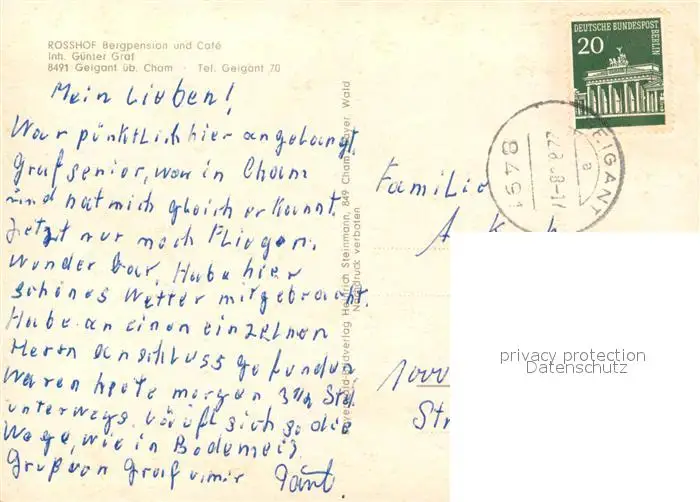 ROSSHOF Bergpension und Café
Inh. Günter Graf
8491 Geigant üb. Cham · Tel. Geigant 70
Mein Lieben!
War pünktlich hier angelangt,
Graf senior, war in Cham
und hat mich gleich erkannt.
Jetzt nur noch Fliegen.
Wunderbar, Habe hier
schönes Wetter mitgebracht.
Habe an einen einzelnen
Herrn anschluss gefunden
Waren heute morgen 3½ Std.
unterwegs. läuft sich so die
Wege, wie in Bodemeis
Gruß von Graf u. mir
Heinrich Steinmann, 849 Cham / Bayer. Wald
Nachdruck verboten
DEUTSCHE BUNDESPOST
BERLIN
20
8491 GEIGANT
a
Familie
1000
Str
privacy protection
Datenschutz